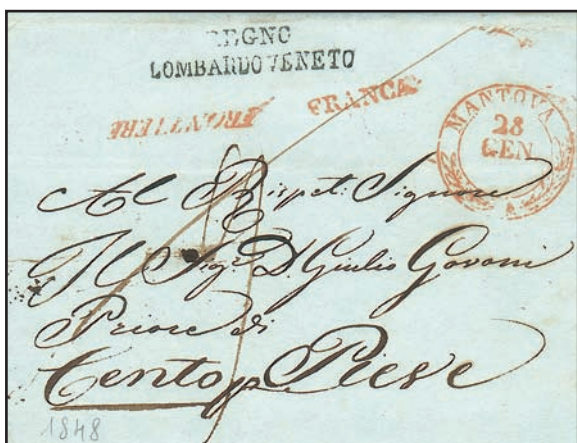 REGNO
LOMBARDO VENETO
FRANCA
FRONTIERE
MANTOVA
28
GEN
Al Rispet: Signore
Il Sigr. D. Giulio Govoni
Priore di
Cento p. Pieve
1848